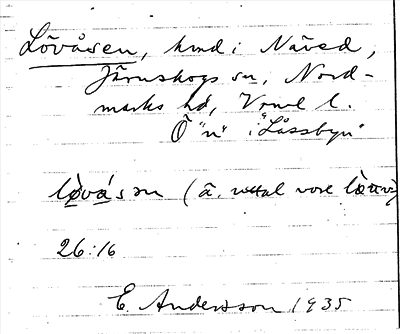 Lövåsen, hmd i Näved,
Järnskogs sn, Nord-
marks hd, Vrml l.
Ö "n" i "Låssbyn"
lø̀vás ən (ä. uttal vore
26:16
E. Andersson 1935